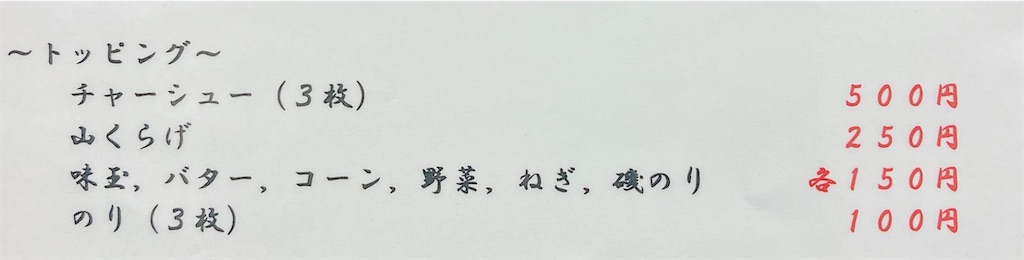 ～トッピング～
チャーシュー（３枚） ５００円
山くらげ ２５０円
味玉，バター，コーン，野菜，ねぎ，磯のり 各１５０円
のり（３枚） １００円